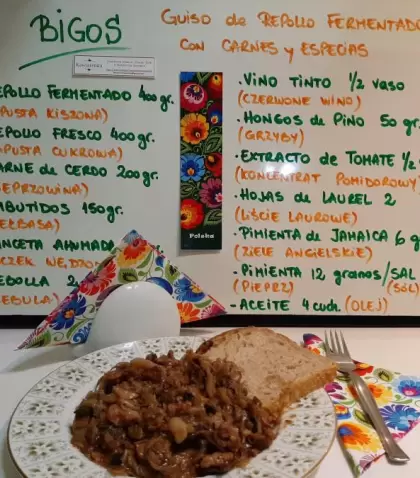 BIGOS
GUISO de REPOLLO FERMENTADO
CON CARNES y ESPECIAS
EPOLLO FERMENTADO 400 gr.
APUSTA KISZONA)
EPOLLO FRESCO 400 gr.
APUSTA CUKROWA)
ARNE de CERDO 200 gr.
IEPRZOWINA)
MBUTIDOS 150 gr.
IEŁBASA)
ANCETA AHUMADA
OCZEK WĘDZO
EBOLLA 2
EBULA)
Polska
• VINO TINTO 1/2 vaso
(CZERWONE WINO)
• HONGOS de PINO 50 gr.
(GRZYBY)
• EXTRACTO de TOMATE 1/2
(KONCENTRAT POMIDOROWY)
• HOJAS de LAUREL 2
(LIŚCIE LAUROWE)
• PIMIENTA de JAMAICA 6 g
(ZIELE ANGIELSKIE)
• PIMIENTA 12 granos/SAL
(PIEPRZ) (SÓL)
• ACEITE 4 cuch. (OLEJ)